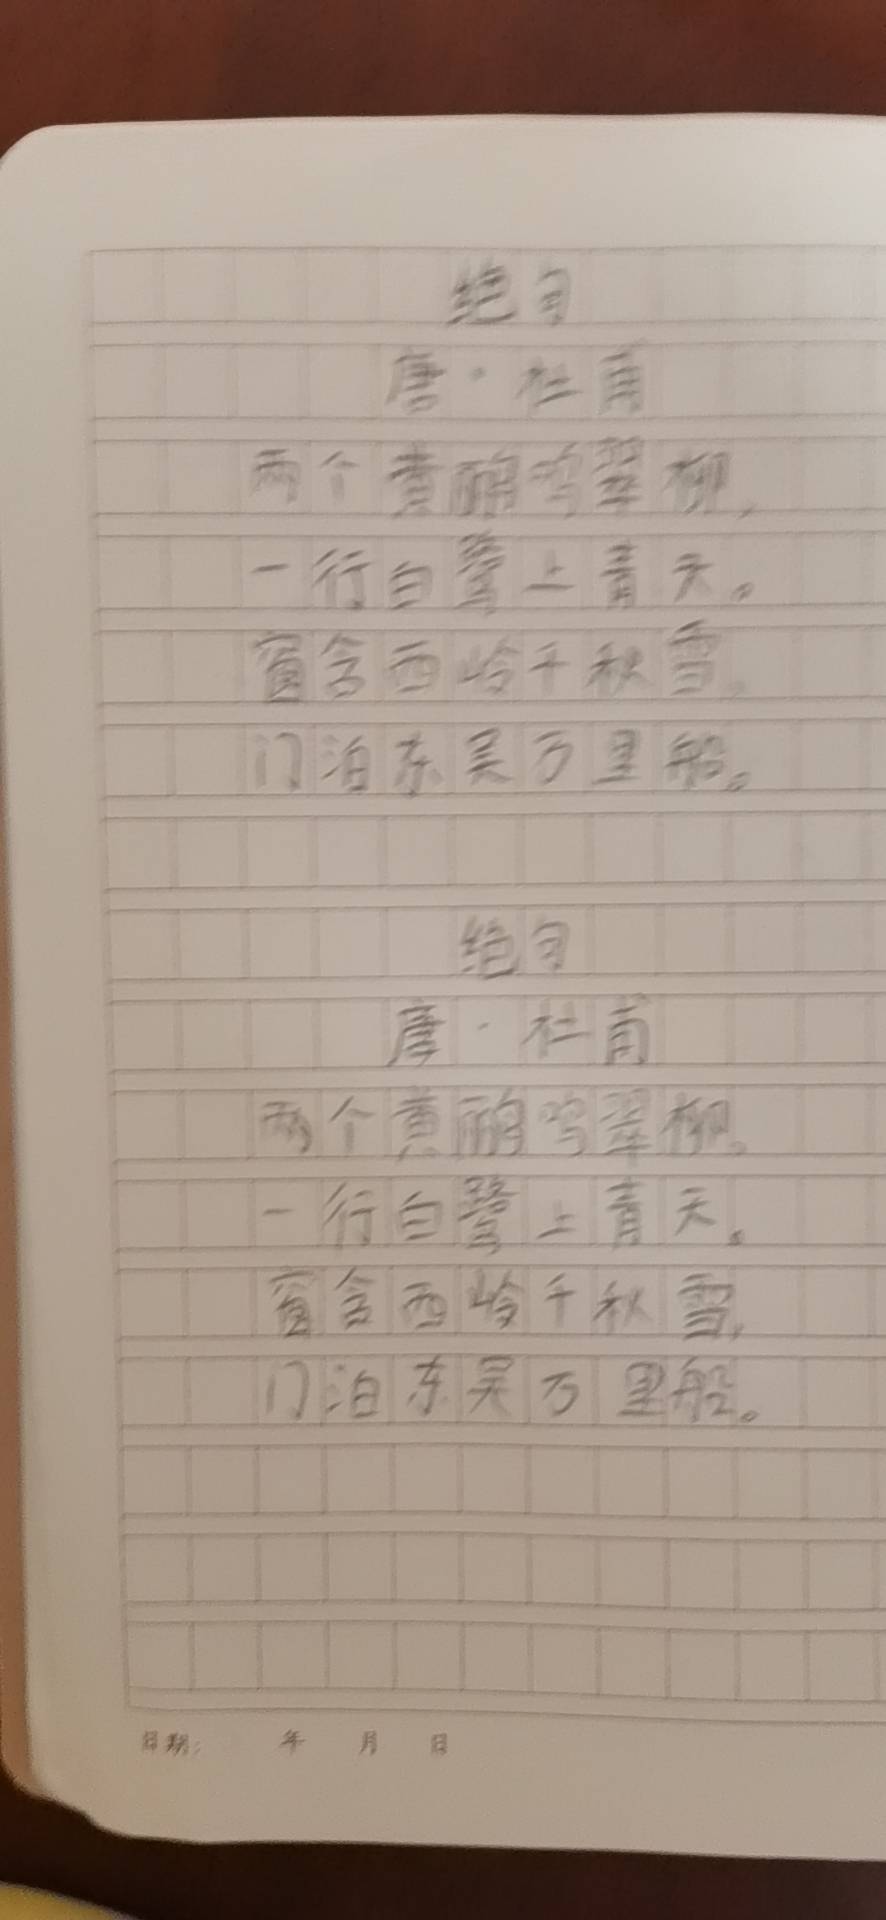 绝句
唐·杜甫
两个黄鹂鸣翠柳，
一行白鹭上青天。
窗含西岭千秋雪，
门泊东吴万里船。
绝句
唐·杜甫
两个黄鹂鸣翠柳，
一行白鹭上青天。
窗含西岭千秋雪，
门泊东吴万里船。
日期： 年 月 日